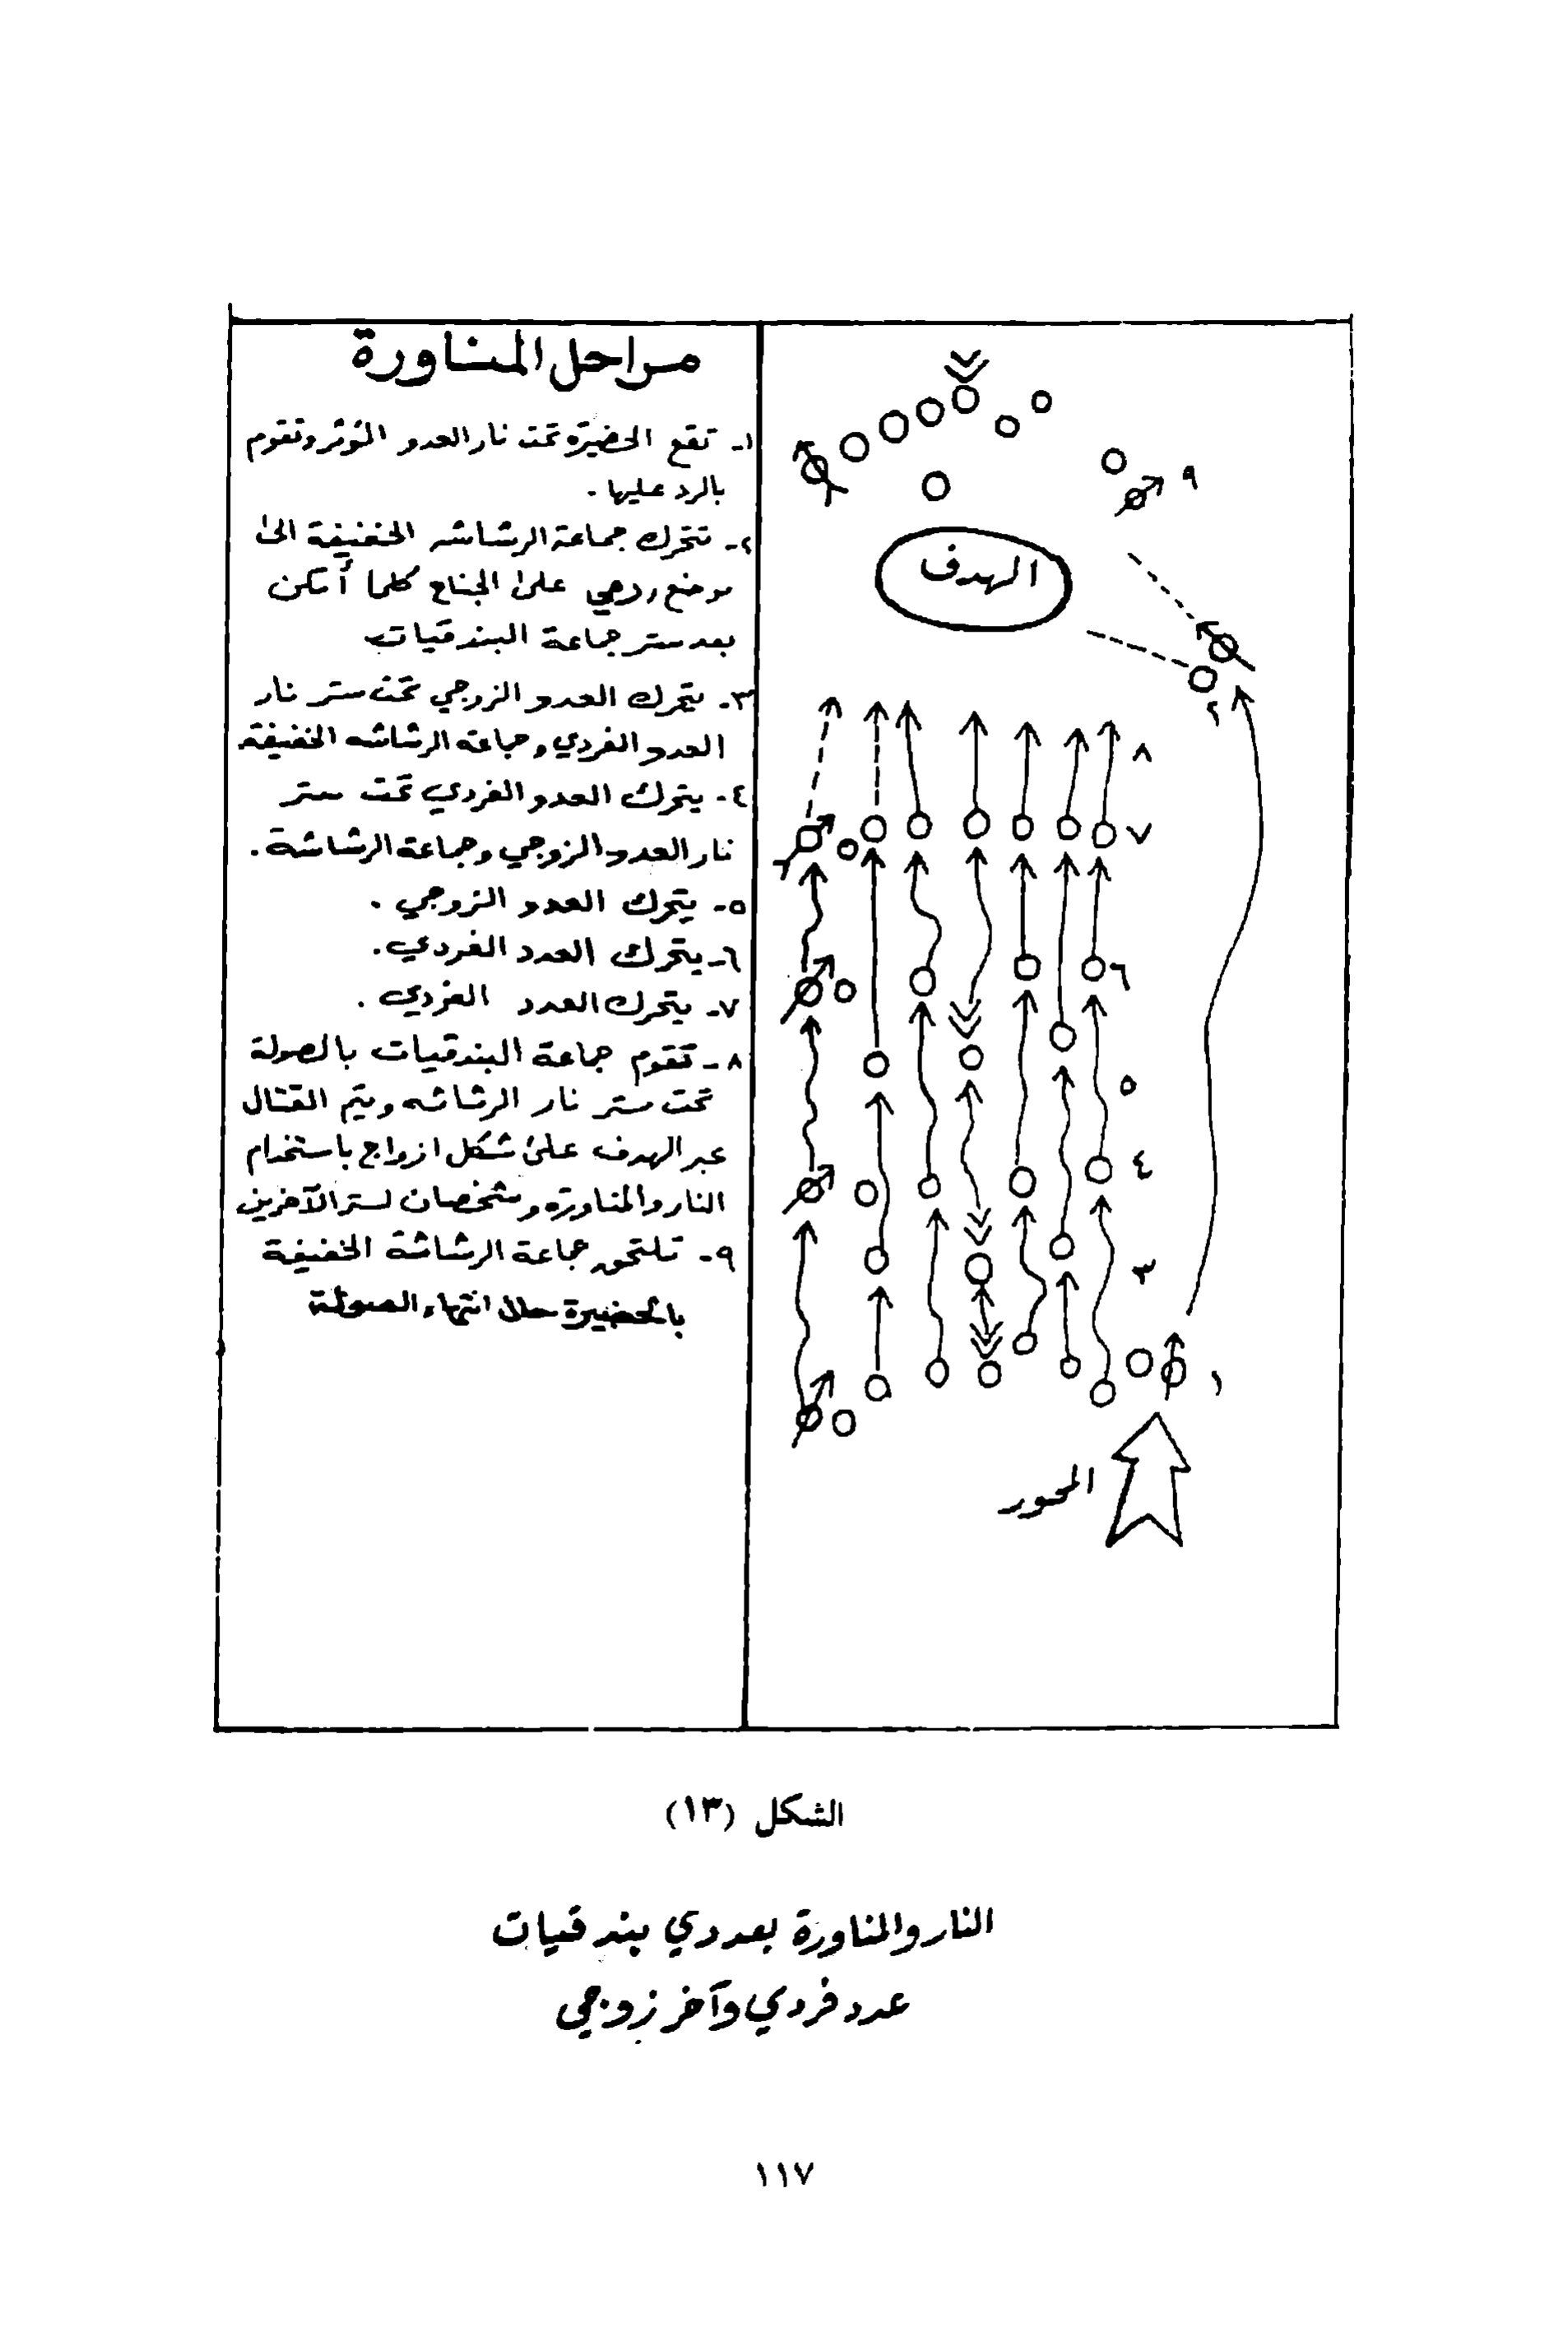 مراحل المناورة
١- تقع الحضيرة تحت نار العدو المؤثر وتقوم
بالرد عليها.
٢- تتحرك جماعة الرشاش الخفيفة الى
موضع ردمي على الجناح كلما أمكن
بعد ستر جماعة البندقيات
٣- يتحرك العدد الزوجي تحت ستر نار
العدد الفردي وجماعة الرشاشه الخفيفة
٤- يتحرك العدد الفردي تحت ستر
نار العدد الزوجي وجماعة الرشاشة.
٥- يتحرك العدد الزوجي.
٦- يتحرك العدد الفردي.
٧- يتحرك العدد الفردي.
٨- تقوم جماعة البندقيات بالصولة
تحت ستر نار الرشاشه ويتم القتال
عبر الهدف على شكل ازواج باستخدام
النار والمناورة وشخصان لستر الآخرين
٩- تلتحق جماعة الرشاشة الخفيفة
بالحضيرة حال انتهاء الصولة
٩
الهدف
٢
٨
٧
٦
٥
٤
٣
١
المحور
الشكل (١٣)
النار والمناورة بعددي بندقيات
عدد فردي وآخر زوجي
١١٧